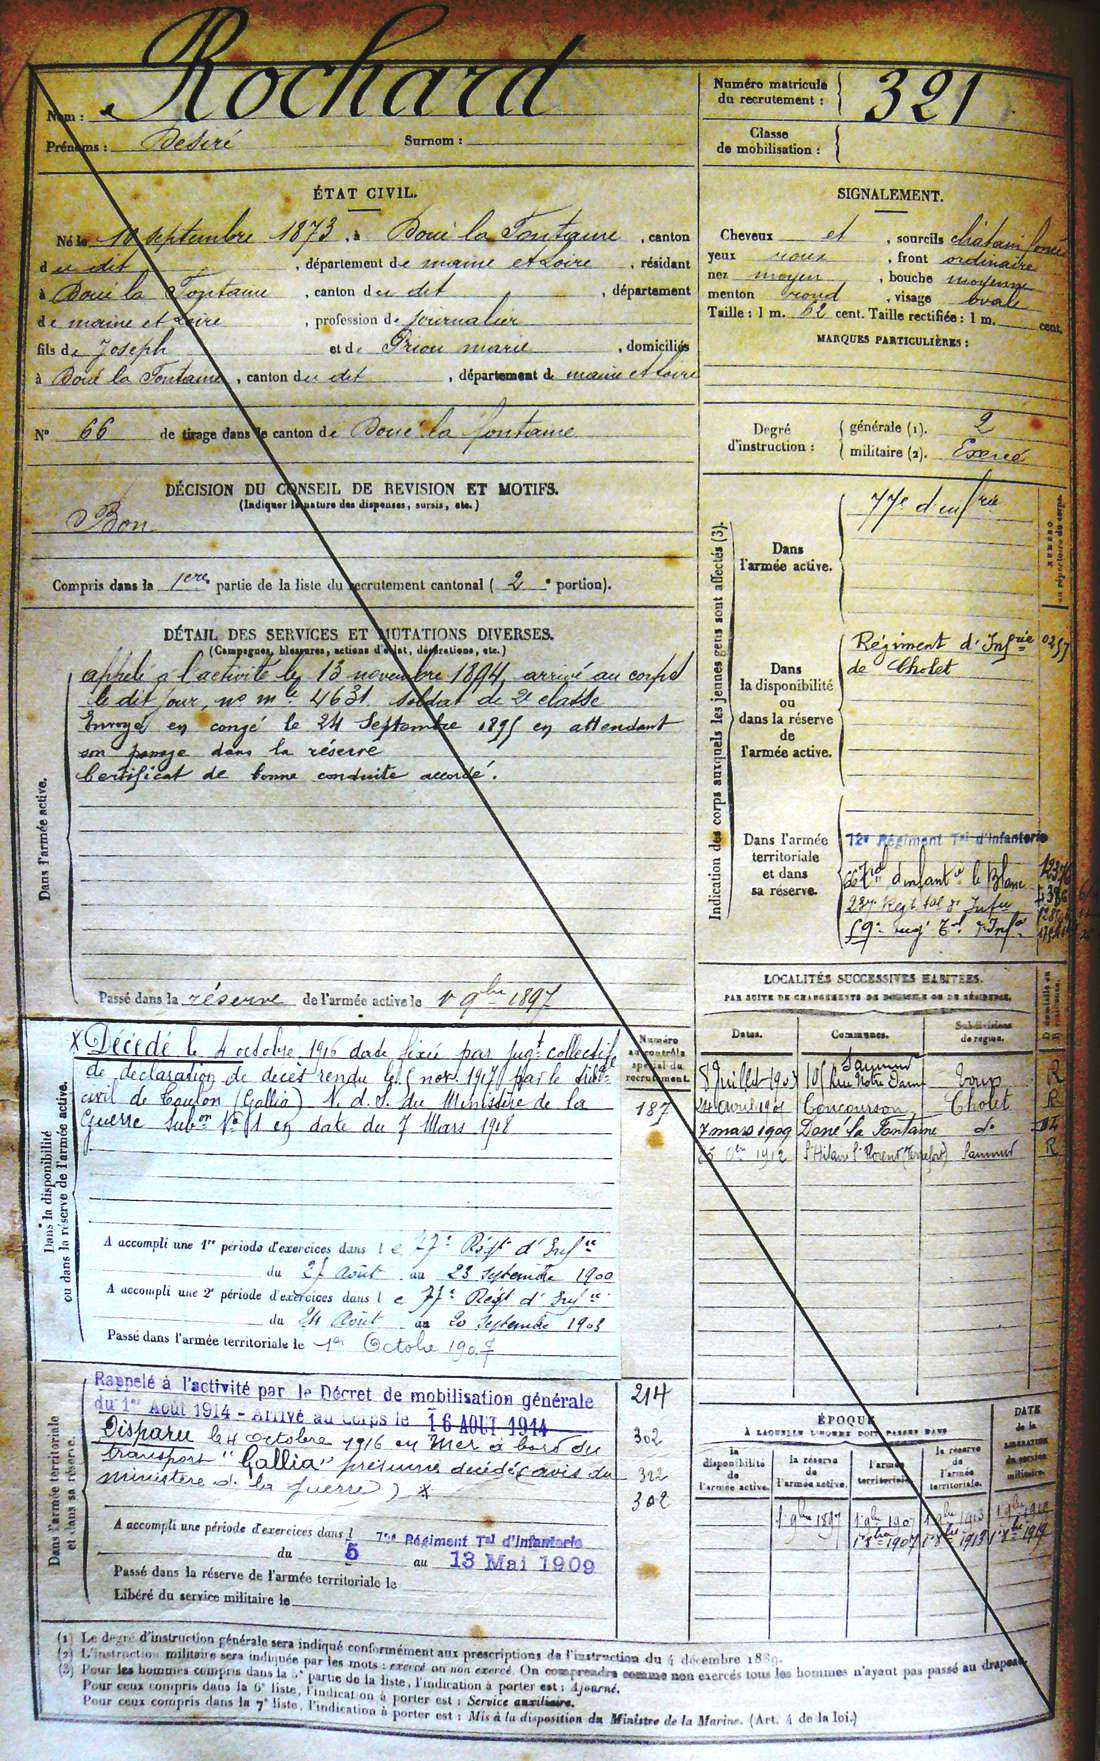 Nom : Rochard
Prénoms : Désiré Surnom :
Numéro matricule
du recrutement : 321
Classe
de mobilisation :
ÉTAT CIVIL.
Né le 10 septembre 1873, à Doué la Fontaine, canton
du dit, département de maine et Loire, résidant
à Doué la Fontaine, canton du dit, département
de maine et Loire, profession de journalier
fils de Joseph et de Priou marie, domiciliés
à Doué la Fontaine, canton du dit, département de maine et Loire
N° 66 de tirage dans le canton de Doué la fontaine
SIGNALEMENT.
Cheveux et, sourcils châtain foncé
yeux roux, front ordinaire
nez moyen, bouche moyenne
menton rond, visage ovale
Taille : 1 m. 62 cent. Taille rectifiée : 1 m. cent.
MARQUES PARTICULIÈRES :
Degré
d'instruction :
générale (1). 2
militaire (2). Exercé
DÉCISION DU CONSEIL DE REVISION ET MOTIFS.
(Indiquer la nature des dispenses, sursis, etc.)
Bon
Compris dans la 1ere partie de la liste du recrutement cantonal (2e portion).
DÉTAIL DES SERVICES ET MUTATIONS DIVERSES.
(Campagnes, blessures, actions d'éclat, décorations, etc.)
Dans l'armée active.
appelé à l'activité le 13 novembre 1894, arrivé au corps
le dit jour, no mle 4631 soldat de 2e classe
Envoyé en congé le 24 Septembre 1895 en attendant
son passage dans la réserve
Certificat de bonne conduite accordé.
Passé dans la réserve de l'armée active le 1r 9bre 1897
Indication des corps auxquels les jeunes gens sont affectés (3).
NUMÉRO
au répertoire du corps.
Dans
l'armée active.
77e d'infrie
Dans
la disponibilité
ou
dans la réserve
de
l'armée active.
Régiment d'Infrie 0257
de Cholet
Dans l'armée
territoriale
et dans
sa réserve.
72e Régiment Tal d'Infanterie
66e tal d'infantie le Blanc
237e Regt tal d'Infie
59e regt Tal d'Infie
LOCALITÉS SUCCESSIVES HABITÉES.
PAR SUITE DE CHANGEMENTS DE DOMICILE OU DE RÉSIDENCE.
Dates. Communes. Subdivisions de région. D. domicile ou R. résidence.
Saumur
8 Juillet 1903 105 Rue Notre Dame Tours R
24 avril 1905 Concourson Cholet R
7 mars 1909 Doué la Fontaine do
1912 St Hilaire St Florent (Terrefort) Saumur R
Numéro
au contrôle
spécial du
recrutement.
187
Dans la disponibilité
ou dans la réserve de l'armée active.
X Décédé le 4 octobre 1916 date fixée par jugt collectif
de déclaration de décès rendu le 5 nov. 1917 par le tribal
civil de Toulon (Gallia) N. d. S. du Ministère de la
Guerre Subon No 51 en date du 7 Mars 1918
A accompli une 1re période d'exercices dans le 77e Régt d'Infie
du 27 Août au 23 Septembre 1900
A accompli une 2e période d'exercices dans le 77e Régt d'Infie
du 24 Août au 20 Septembre 1903
Passé dans l'armée territoriale le 1er Octobre 1907
Dans l'armée territoriale
et dans sa réserve.
Rappelé à l'activité par le Décret de mobilisation générale
du 1er Août 1914 - Arrivé au Corps le 16 AOUT 1914
Disparu le 4 octobre 1916 en Mer à bord du
transport "Gallia" présumé décédé (avis du
ministère de la guerre) X
214
302
322
302
A accompli une période d'exercices dans l 72e Régiment Tal d'Infanterie
du 5 au 13 Mai 1909
Passé dans la réserve de l'armée territoriale le
Libéré du service militaire le
ÉPOQUE
À LAQUELLE L'HOMME DOIT PASSER DANS
la disponibilité de l'armée active.
la réserve de l'armée active.
l'armée territoriale.
la réserve de l'armée territoriale.
DATE de la LIBÉRATION du service militaire.
1r 9bre 1897 1r 9bre 1907 1r 9bre 1913 1r 9bre 1919
1r 8bre 1907 1r 8bre 1913 1r 8bre 1919
(1) Le degré d'instruction générale sera indiqué conformément aux prescriptions de l'instruction du 4 décembre 1889.
(2) L'instruction militaire sera indiquée par les mots : exercé ou non exercé. On comprendra comme non exercés tous les hommes n'ayant pas passé au drapeau.
(3) Pour les hommes compris dans la 5e partie de la liste, l'indication à porter est : Ajourné.
Pour ceux compris dans la 6e liste, l'indication à porter est : Service auxiliaire.
Pour ceux compris dans la 7e liste, l'indication à porter est : Mis à la disposition du Ministre de la Marine. (Art. 4 de la loi.)